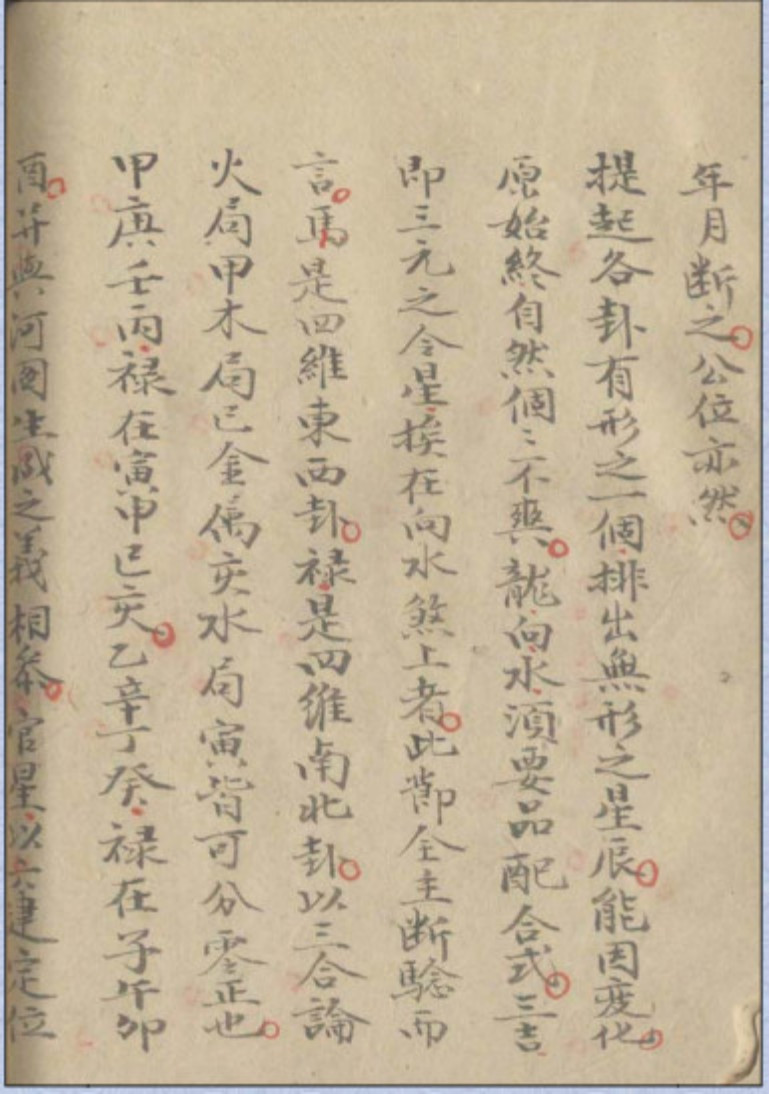 年月断之公位亦然
提起各卦有形之一個排出無形之星辰能因変化
原始終自然個〻不爽龍向水須要品配合式三吉
即三元之令星挨在向水煞上者此節全主断驗而
言馬是四維東西卦禄是四維南北卦以三合論
火局甲木局巳金屬亥水局寅皆可分零正也
甲庚壬丙禄在寅申巳亥乙辛丁癸禄在子午卯
酉并與河圖生成之義相叅官星以六建定位